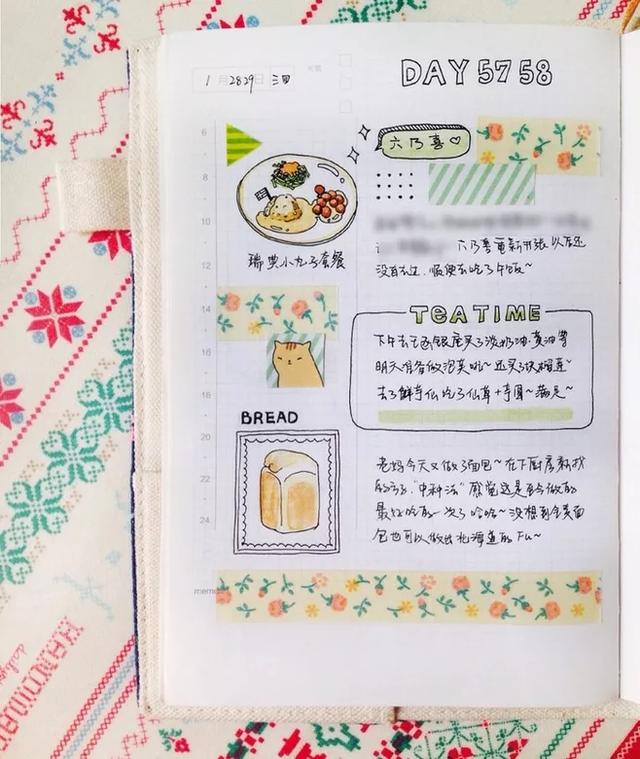 DAY 57 58
1月 28 29日 三四
六乃喜♡
瑞典小丸子套餐
六乃喜重新开张以后还
没有去过 顺便去吃了午饭~
TEA TIME
下午去 银座买了淡奶油 黄油等
明天准备做泡芙啦~ 还买了快
去了鲜芋仙 吃了仙草+芋圆~满足~
BREAD
老妈今天又做了面包~在下厨房新找
的方子 "中种法" 感觉这是至今做的
最好吃的一次了 哈哈~ 没想到 面
包也可以做出北海道的Fu~
6
8
10
12
14
16
18
20
22
24
memo